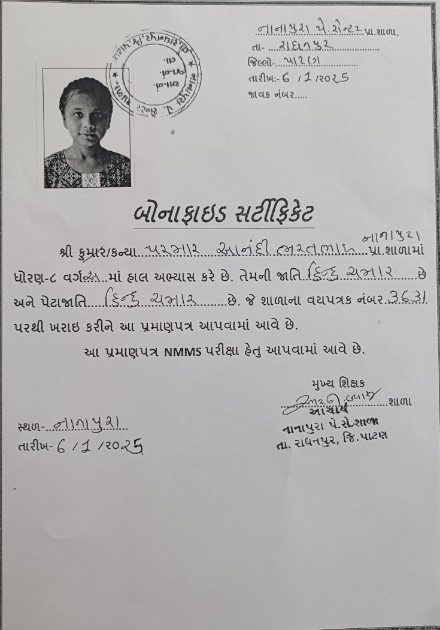 નાનાપુરા પે. સેન્ટર પ્રા.શાળા,
તા- રાધનપુર
જિલ્લો- પાટણ
તારીખ:- 6/1/2025
જાવક નંબર.....
બોનાફાઇડ સર્ટીફિકેટ
નાનાપુરા
શ્રી કુમાર/કન્યા પરમાર આનંદી ભરતભાઇ પ્રા.શાળામાં
ધોરણ-૮ વર્ગ માં હાલ અભ્યાસ કરે છે. તેમની જાતિ હિન્દુ ચમાર છે
અને પેટાજાતિ હિન્દુ ચમાર છે. જે શાળાના વયપત્રક નંબર 3631
પરથી ખરાઇ કરીને આ પ્રમાણપત્ર આપવામાં આવે છે.
આ પ્રમાણપત્ર NMMS પરીક્ષા હેતુ આપવામાં આવે છે.
મુખ્ય શિક્ષક
શાળા
આચાર્ય
નાનાપુરા પે.સે.શાળા
તા. રાધનપુર, જિ.પાટણ
સ્થળ- નાનાપુરા
તારીખ- 6/1/2025